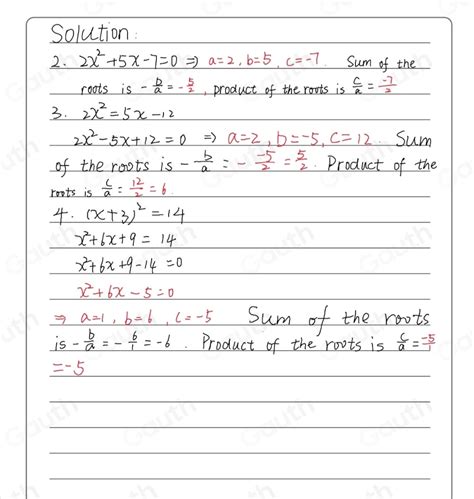 Solution:
2. 2x²+5x-7=0 ⇒ a=2, b=5, c=-7. Sum of the
roots is -b/a=-5/2, product of the roots is c/a=-7/2
3. 2x²=5x-12
2x²-5x+12=0 ⇒ a=2, b=-5, c=12. Sum
of the roots is -b/a=--5/2=5/2. Product of the
roots is c/a=12/2=6.
4. (x+3)²=14
x²+6x+9=14
x²+6x+9-14=0
x²+6x-5=0
⇒ a=1, b=6, c=-5 Sum of the roots
is -b/a=-6/1=-6. Product of the roots is c/a=-5/1
=-5